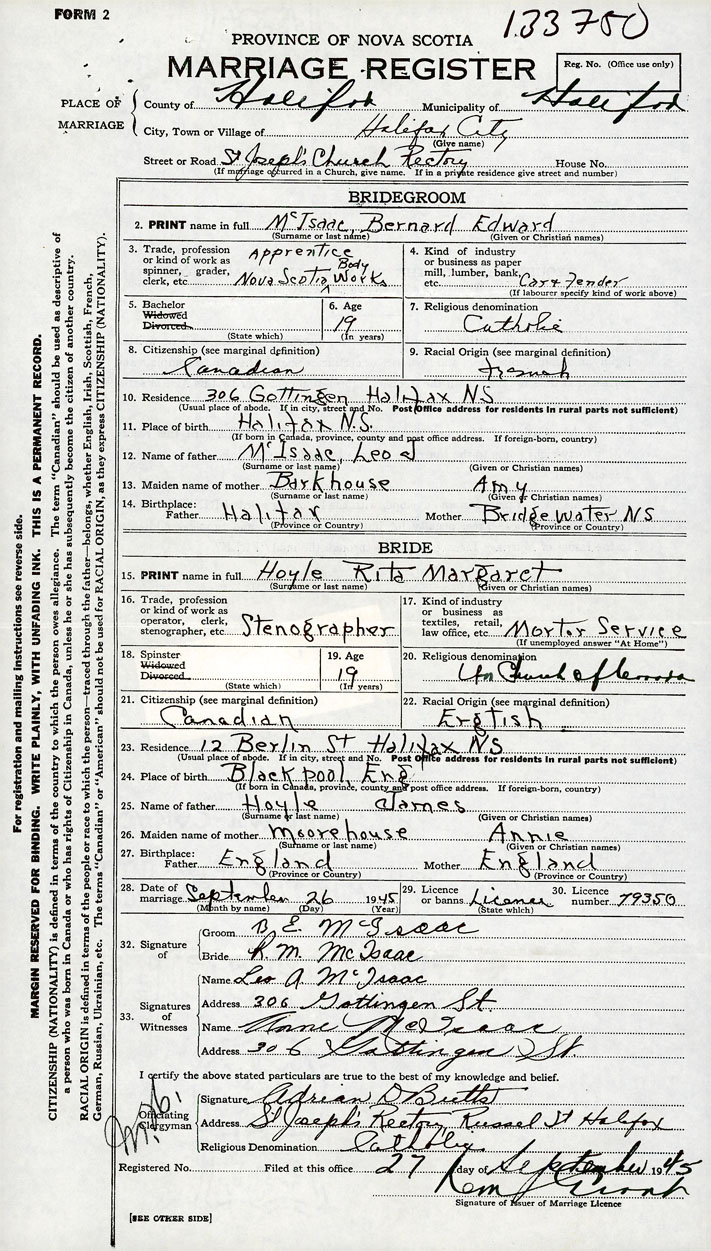 FORM 2
133750
PROVINCE OF NOVA SCOTIA
MARRIAGE REGISTER
Reg. No. (Office use only)
PLACE OF MARRIAGE
County of Halifax Municipality of Halifax
City, Town or Village of Halifax City
(Give name)
Street or Road St Joseph's Church Rectory House No.
(If marriage occurred in a Church, give name. If in a private residence give street and number)
BRIDEGROOM
2. PRINT name in full McIsaac, Bernard Edward
(Surname or last name) (Given or Christian names)
3. Trade, profession or kind of work as spinner, grader, clerk, etc. Apprentice Nova Scotia Body Works
4. Kind of industry or business as paper mill, lumber, bank, etc. Car & Fender
(If labourer specify kind of work above)
5. Bachelor Widowed Divorced
(State which)
6. Age 19
(In years)
7. Religious denomination Catholic
8. Citizenship (see marginal definition) Canadian
9. Racial Origin (see marginal definition)
10. Residence 306 Gottingen Halifax NS
(Usual place of abode. If in city, street and No. Post Office address for residents in rural parts not sufficient)
11. Place of birth Halifax N.S.
(If born in Canada, province, county and post office address. If foreign-born, country)
12. Name of father McIsaac, Leo
(Surname or last name) (Given or Christian names)
13. Maiden name of mother Barkhouse Amy
(Surname or last name) (Given or Christian names)
14. Birthplace: Father Halifax Mother Bridgewater NS
(Province or Country) (Province or Country)
BRIDE
15. PRINT name in full Hoyle Rita Margaret
(Surname or last name) (Given or Christian names)
16. Trade, profession or kind of work as operator, clerk, stenographer, etc. Stenographer
17. Kind of industry or business as textiles, retail, law office, etc. Mortor Service
(If unemployed answer "At Home")
18. Spinster Widowed Divorced
(State which)
19. Age 19
(In years)
20. Religious denomination Un Church of Canada
21. Citizenship (see marginal definition) Canadian
22. Racial Origin (see marginal definition) English
23. Residence 12 Berlin St Halifax NS
(Usual place of abode. If in city, street and No. Post Office address for residents in rural parts not sufficient)
24. Place of birth Blackpool, Eng
(If born in Canada, province, county and post office address. If foreign-born, country)
25. Name of father Hoyle James
(Surname or last name) (Given or Christian names)
26. Maiden name of mother Moorehouse Annie
(Surname or last name) (Given or Christian names)
27. Birthplace: Father England Mother England
(Province or Country) (Province or Country)
28. Date of marriage September 26 1945
(Month by name) (Day) (Year)
29. Licence or banns License
(State which)
30. Licence number 79350
32. Signature of
Groom B. E. McIsaac
Bride R. M. McIsaac
33. Signatures of Witnesses
Name Leo A. McIsaac
Address 306 Gottingen St.
Name Anne McIsaac
Address 306 Gottingen St.
I certify the above stated particulars are true to the best of my knowledge and belief.
Officiating Clergyman
Signature Adrian D Butts
Address St Joseph's Rectory Russel St Halifax
Religious Denomination Catholic
Registered No. Filed at this office 27 day of September 1945
Signature of Issuer of Marriage Licence
[SEE OTHER SIDE]
For registration and mailing instructions see reverse side.
MARGIN RESERVED FOR BINDING. WRITE PLAINLY, WITH UNFADING INK. THIS IS A PERMANENT RECORD.
CITIZENSHIP (NATIONALITY) is defined in terms of the country to which the person owes allegiance. The term "Canadian" should be used as descriptive of
a person who was born in Canada or who has rights of Citizenship in Canada, unless he or she has subsequently become the citizen of another country.
RACIAL ORIGIN is defined in terms of the people or race to which the person—traced through the father—belongs, whether English, Irish, Scottish, French,
German, Russian, Ukrainian, etc. The terms "Canadian" or "American" should not be used for RACIAL ORIGIN, as they express CITIZENSHIP (NATIONALITY).